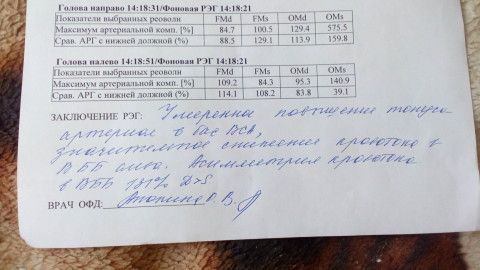 Голова направо 14:18:31/Фоновая РЭГ 14:18:21
Показатели выбранных реоволн FMd FMs OMd OMs
Максимум артериальной комп. [%] 84.7 100.5 129.4 575.5
Срав. АРГ с нижней должной (%) 88.5 129.1 113.9 159.8
Голова налево 14:18:51/Фоновая РЭГ 14:18:21
Показатели выбранных реоволн FMd FMs OMd OMs
Максимум артериальной комп. [%] 109.2 84.3 95.3 140.9
Срав. АРГ с нижней должной (%) 114.1 108.2 83.8 39.1
ЗАКЛЮЧЕНИЕ РЭГ: Умеренное повышение тонуса
артериол в бас ВСА,
значительное снижение кровотока в
ВББ слева. Асимметрия кровотока
в ВББ 181% D>S
ВРАЧ ОФД: